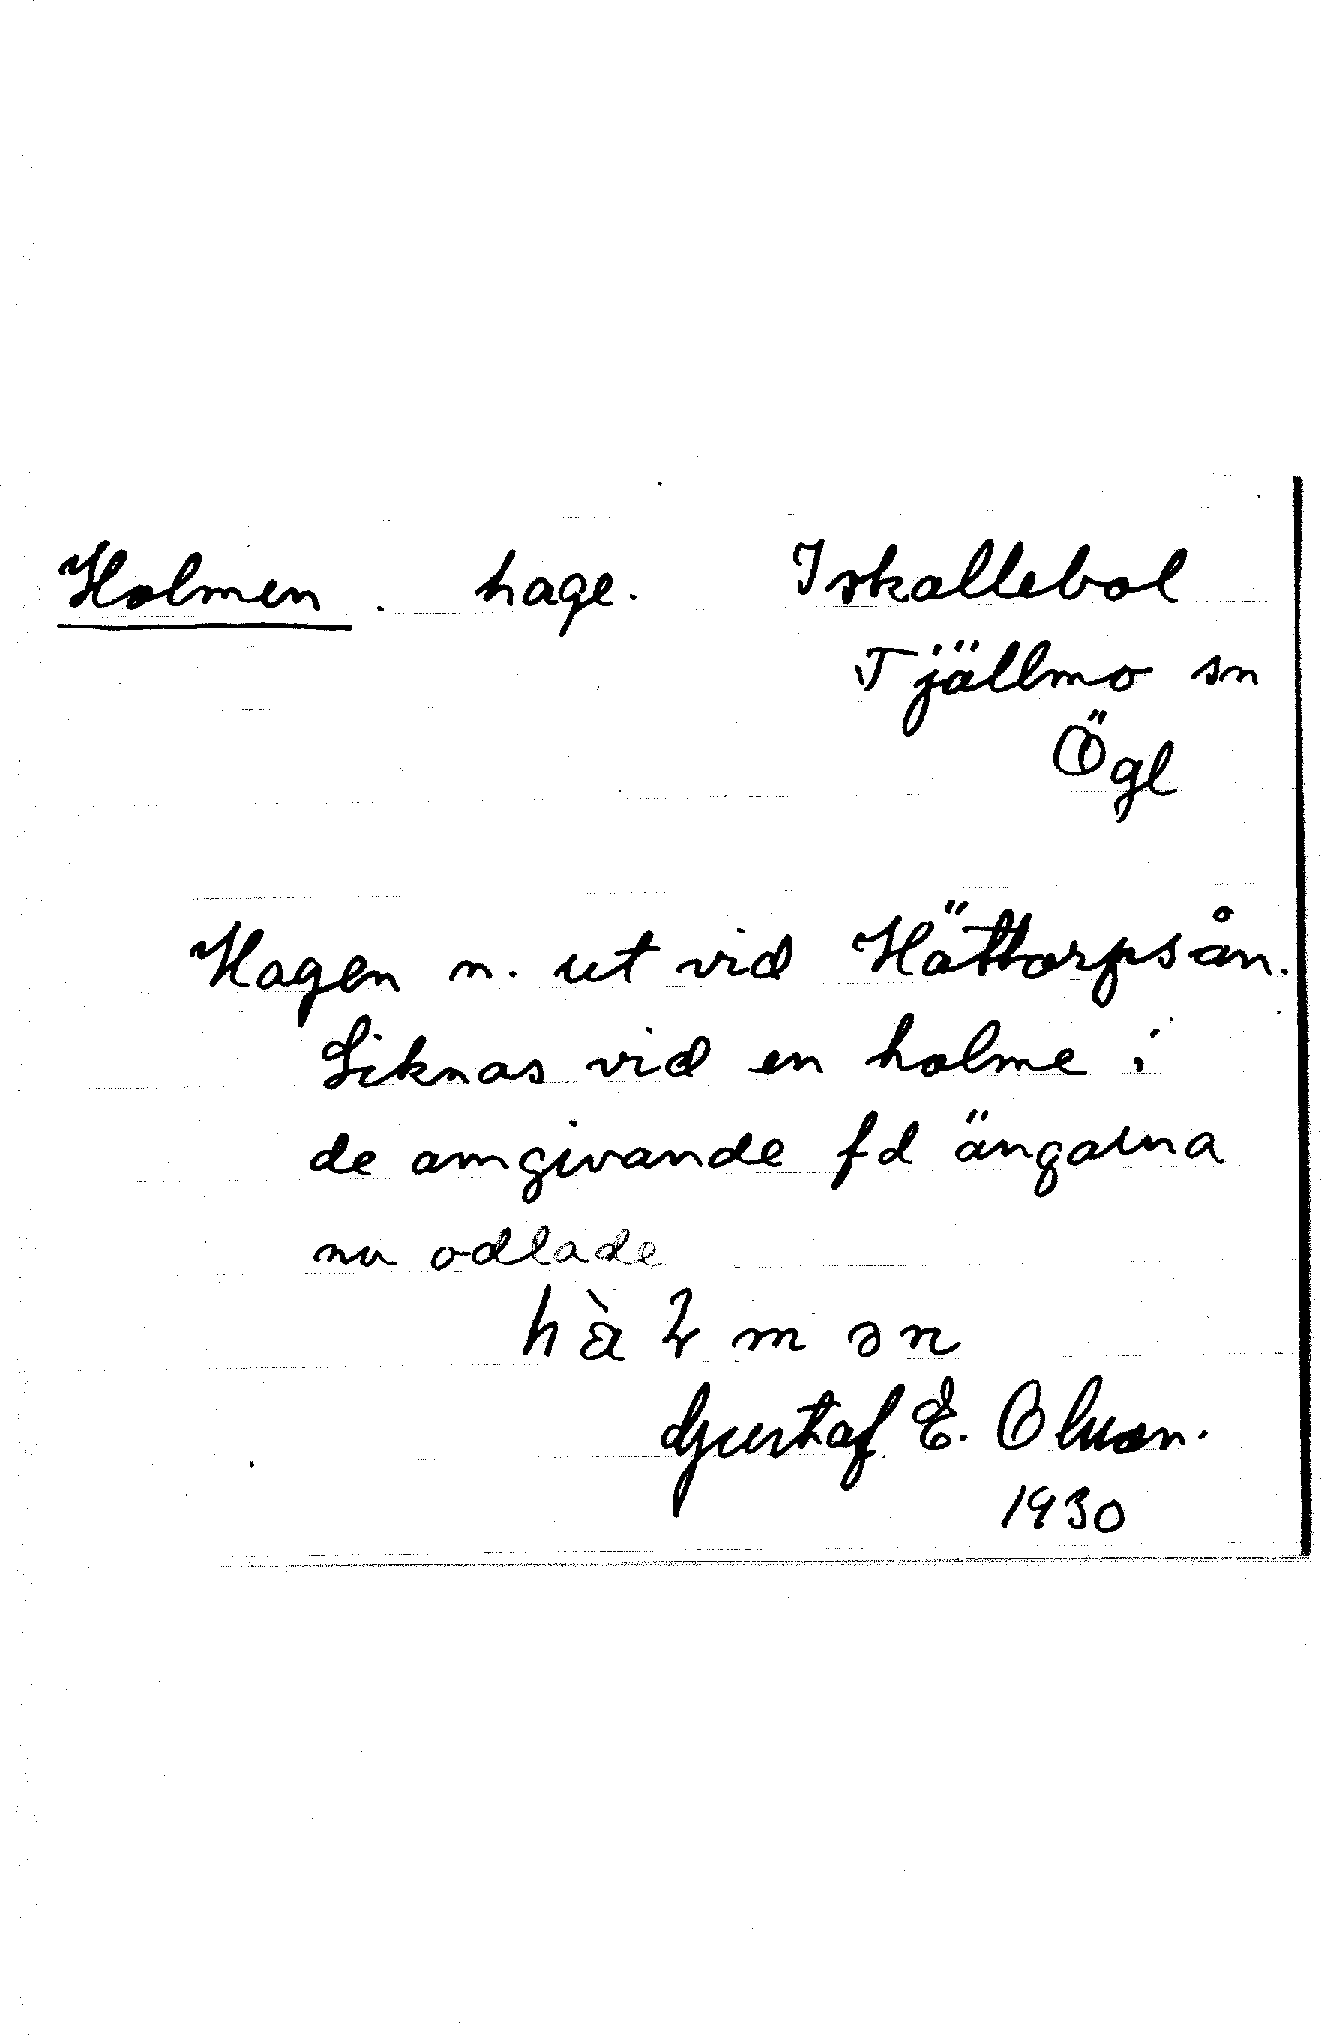 Holmen. hage. Iskallebol
Tjällmo sn
Ögl
Hagen n. ut vid Hättorpsån.
Liknas vid en holme i
de omgivande fd ängarna
nu odlade
Gustaf E. Olsson.
1930